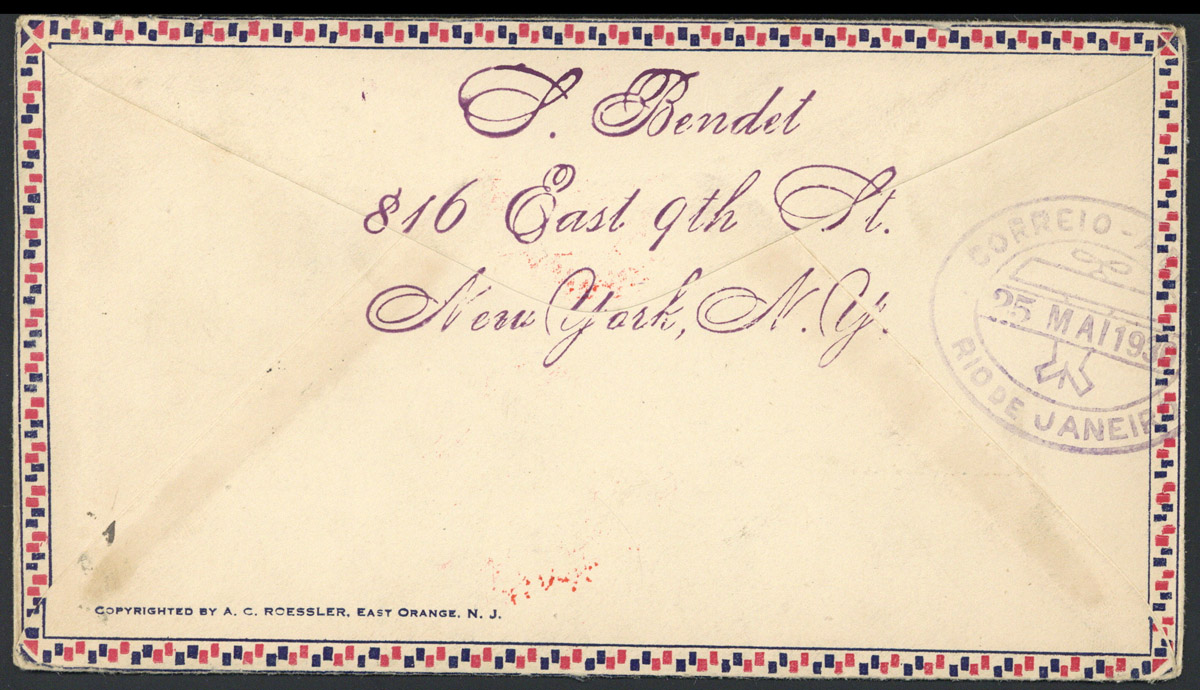 S. Bendet
816 East 9th St.
New York, N. Y.
CORREIO - A
25 MAI 193
RIO DE JANEIRO
COPYRIGHTED BY A. C. ROESSLER, EAST ORANGE, N. J.